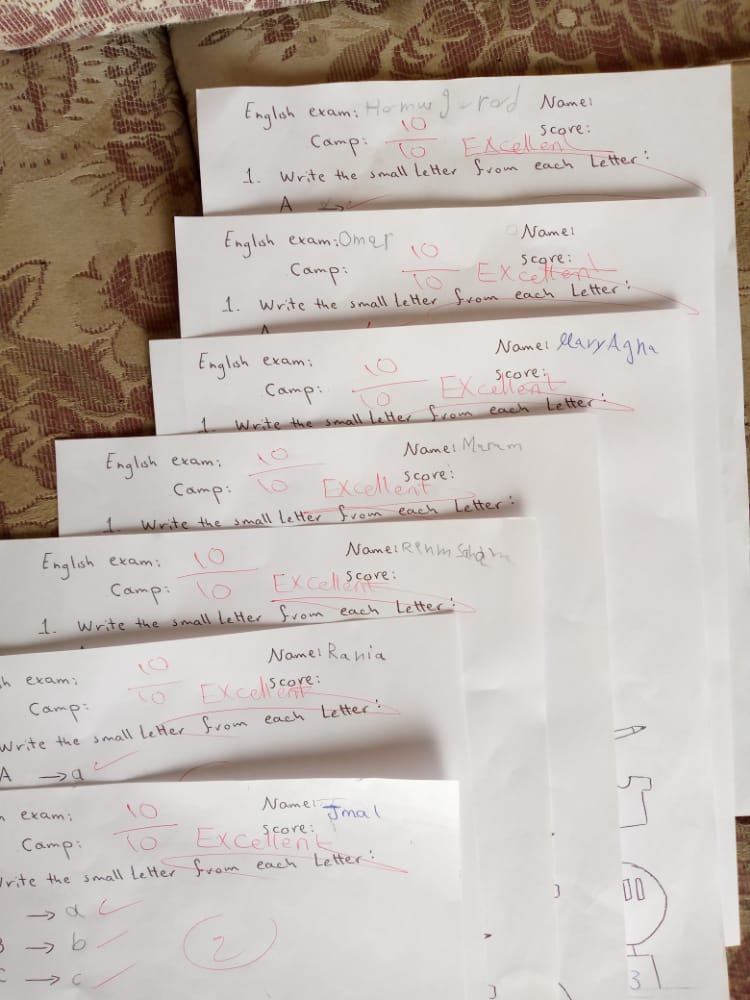 English exam: Name:
Camp: 10/10 Excellent score:
1. Write the small Letter from each Letter:
A →
English exam: Omer Name:
Camp: 10/10 Excellent score:
1. Write the small Letter from each Letter:
English exam: Name: MaryAgna
Camp: 10/10 Excellent score:
1. Write the small Letter from each Letter:
English exam: Name: Muram
Camp: 10/10 Excellent score:
1. Write the small Letter from each Letter:
English exam: Name:
Camp: 10/10 Excellent score:
1. Write the small Letter from each Letter:
exam: Name: Rania
Camp: 10/10 Excellent score:
Write the small Letter from each Letter:
A → a
exam: Name: Jmal
Camp: 10/10 Excellent score:
Write the small Letter from each Letter:
→ a
B → b 2
C → c
3